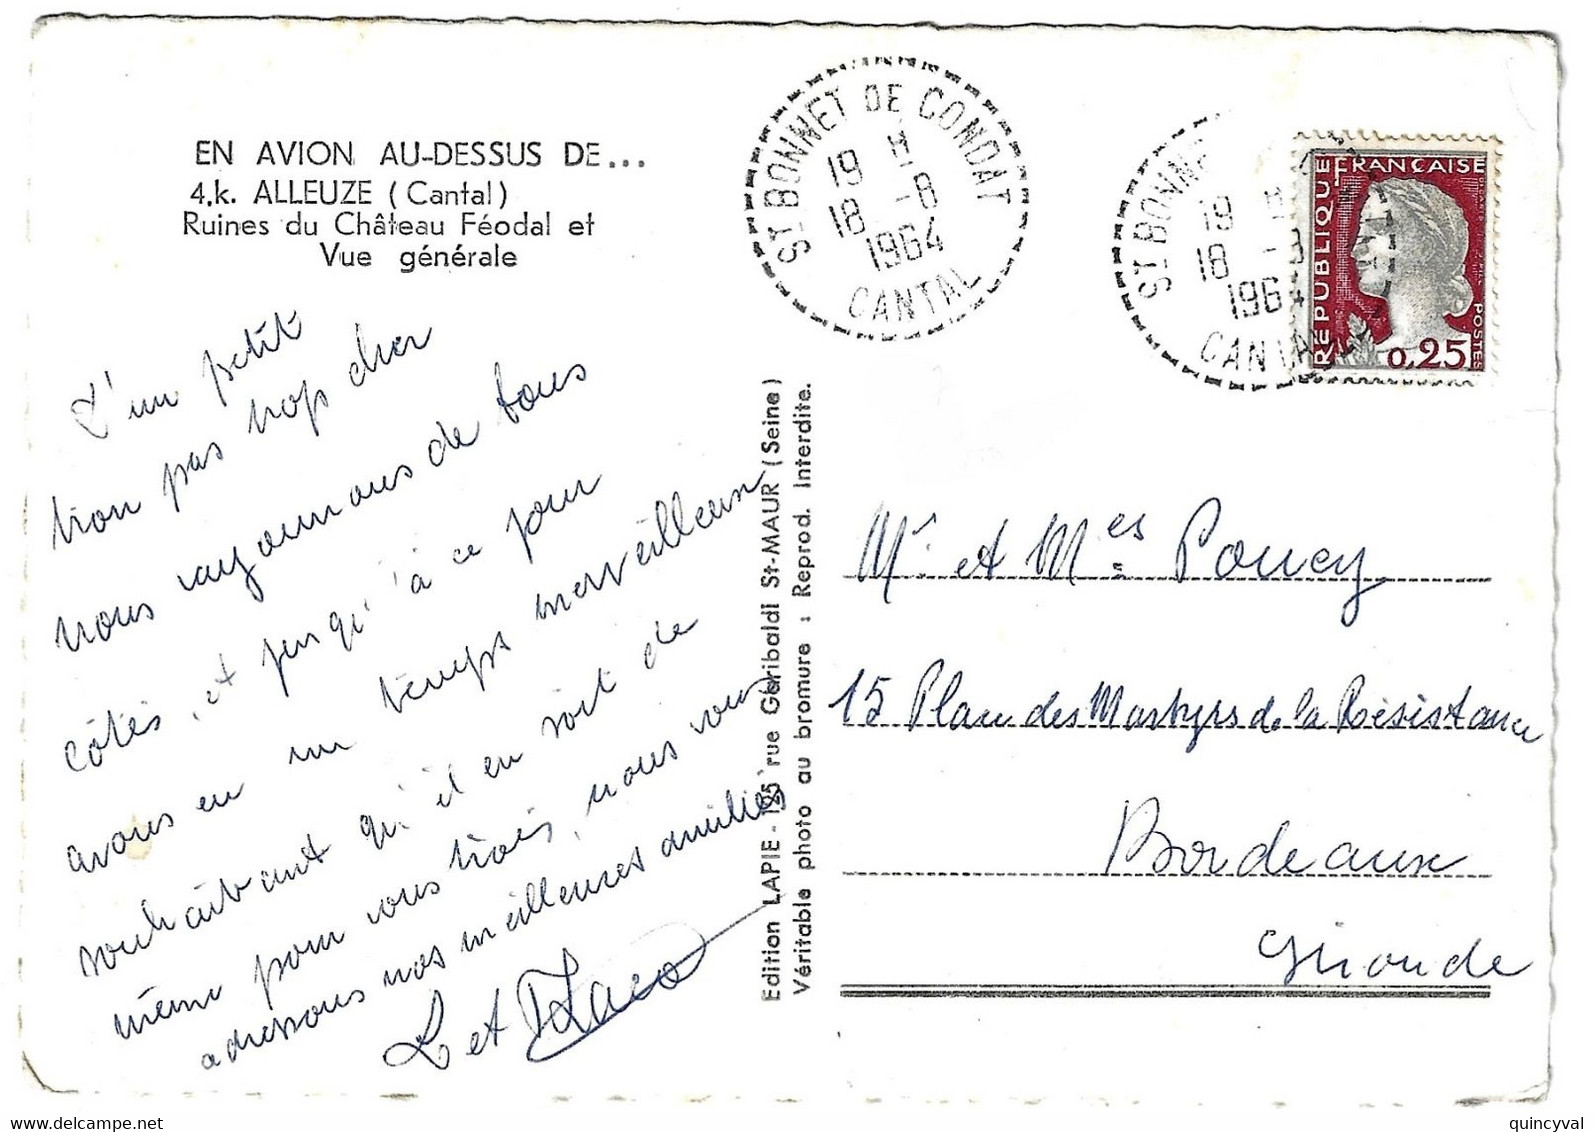 EN AVION AU-DESSUS DE...
4.k. ALLEUZE (Cantal)
Ruines du Château Féodal et
Vue générale
D'un petit
tron pas trop cher
nous rayonnons de tous
côtés, et jusqu'à ce jour
avons eu un temps merveilleux
souhaitant qu'il en soit de
même pour vous trois, nous vous
adressons nos meilleures amitiés
L et
Edition LAPIE - 125 rue Garibaldi St-MAUR (Seine)
Véritable photo au bromure : Reprod. Interdite.
ST BONNET DE CONDAT
19 H
18 -8
1964
CANTAL
ST BONNE
19 H
18 -8
1964
CANTAL
REPUBLIQUE FRANÇAISE
POSTES
0,25
Mr et Mes Poucy
15 Place des Martyrs de la Résistance
Bordeaux
Gironde
quincyval